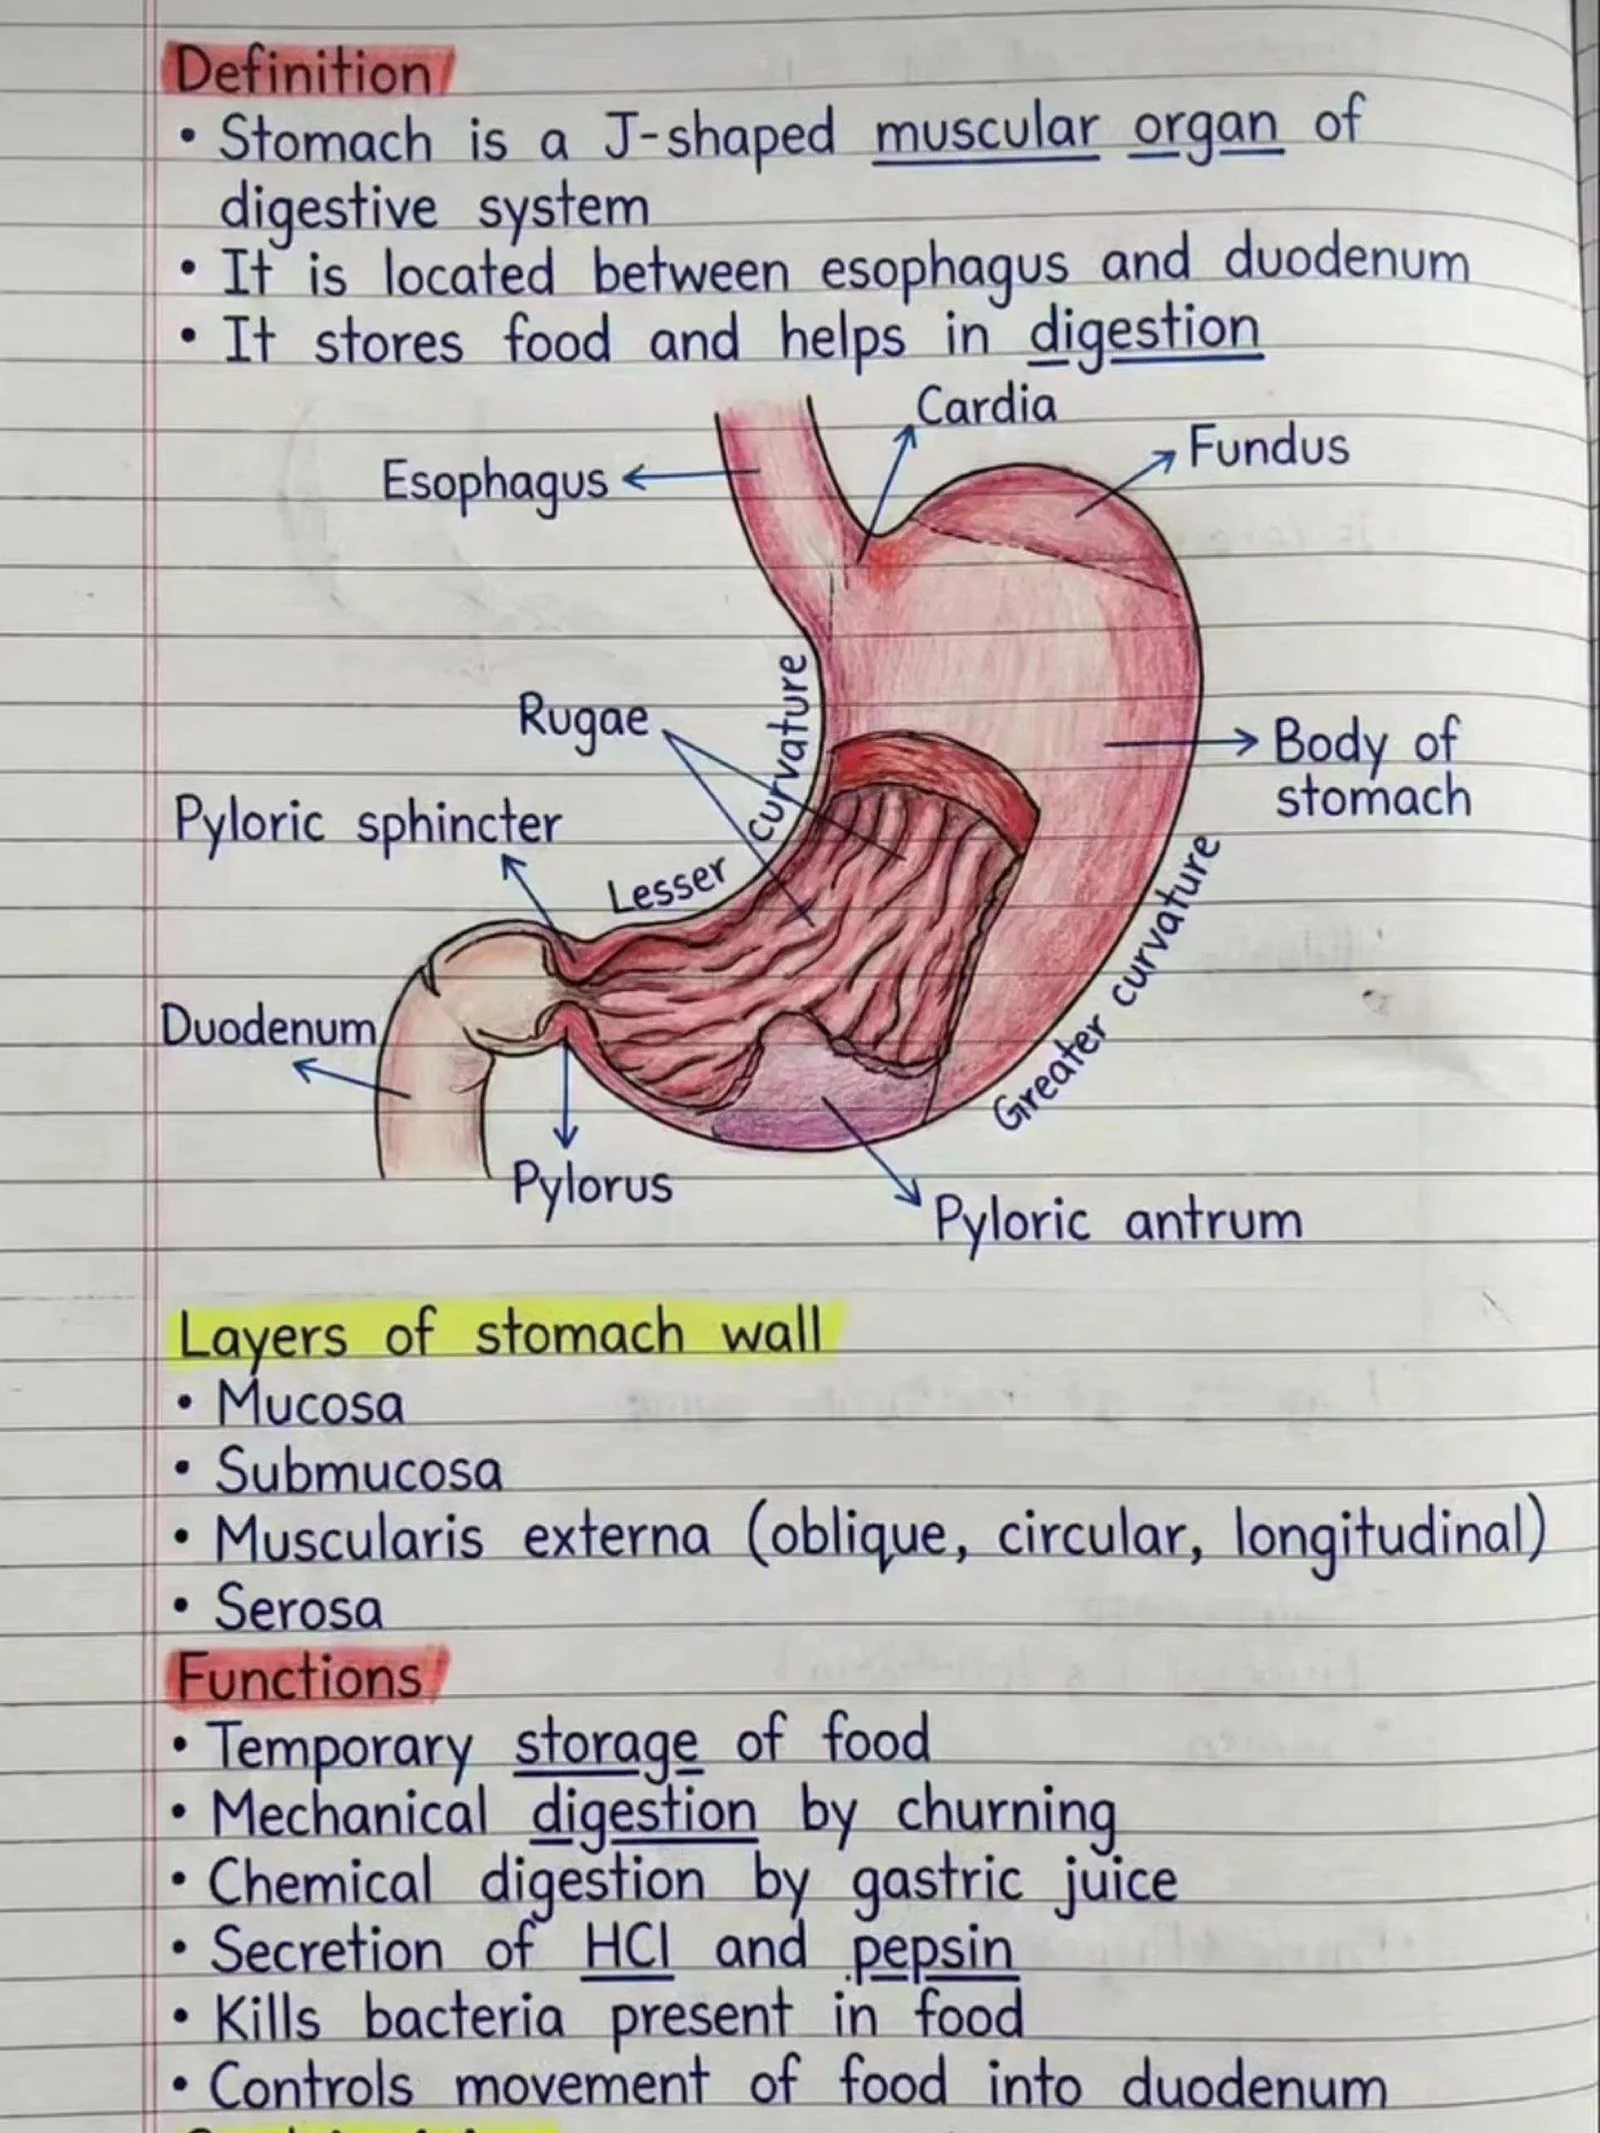 Definition
• Stomach is a J-shaped muscular organ of
digestive system
• It is located between esophagus and duodenum
• It stores food and helps in digestion
Cardia
Fundus
Esophagus
Rugae
Lesser curvature
Body of
stomach
Pyloric sphincter
Greater curvature
Duodenum
Pylorus
Pyloric antrum
Layers of stomach wall
• Mucosa
• Submucosa
• Muscularis externa (oblique, circular, longitudinal)
• Serosa
Functions
• Temporary storage of food
• Mechanical digestion by churning
• Chemical digestion by gastric juice
• Secretion of HCl and pepsin
• Kills bacteria present in food
• Controls movement of food into duodenum